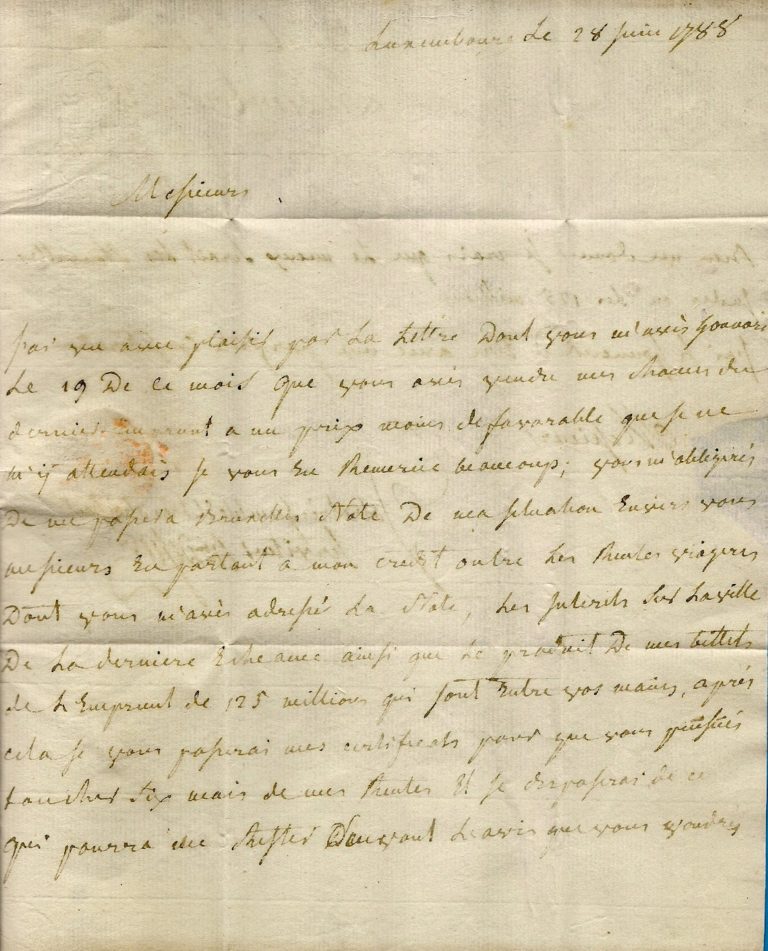 Luxembourg Le 28 Juin 1788
Messieurs
J'ai vu avec plaisir par La Lettre Dont vous m'avès honnoré
Le 19 De ce mois que vous avès vendu mes
dernier Emprunt a un prix moins defavorable que je ne
m'ÿ attendais je vous En Remercie beaucoup; vous m'obligerès
De me passer a Bruxelles Note De ma situation Envers vous
messieurs En portant a mon credit outre Les Rentes viageres
Dont vous m'avès adressé La Note, Les Interets sur La ville
De La derniere Echeance ainsi que Le produit De mes billets
de L'Emprunt de 125 millions qui sont Entre vos mains, après
cela je vous passerai mes certificats pour que vous puissiés
toucher six mois de mes Rentes Et je disposerai de ce
qui pourra me Rester suivant L'avis que vous voudrès